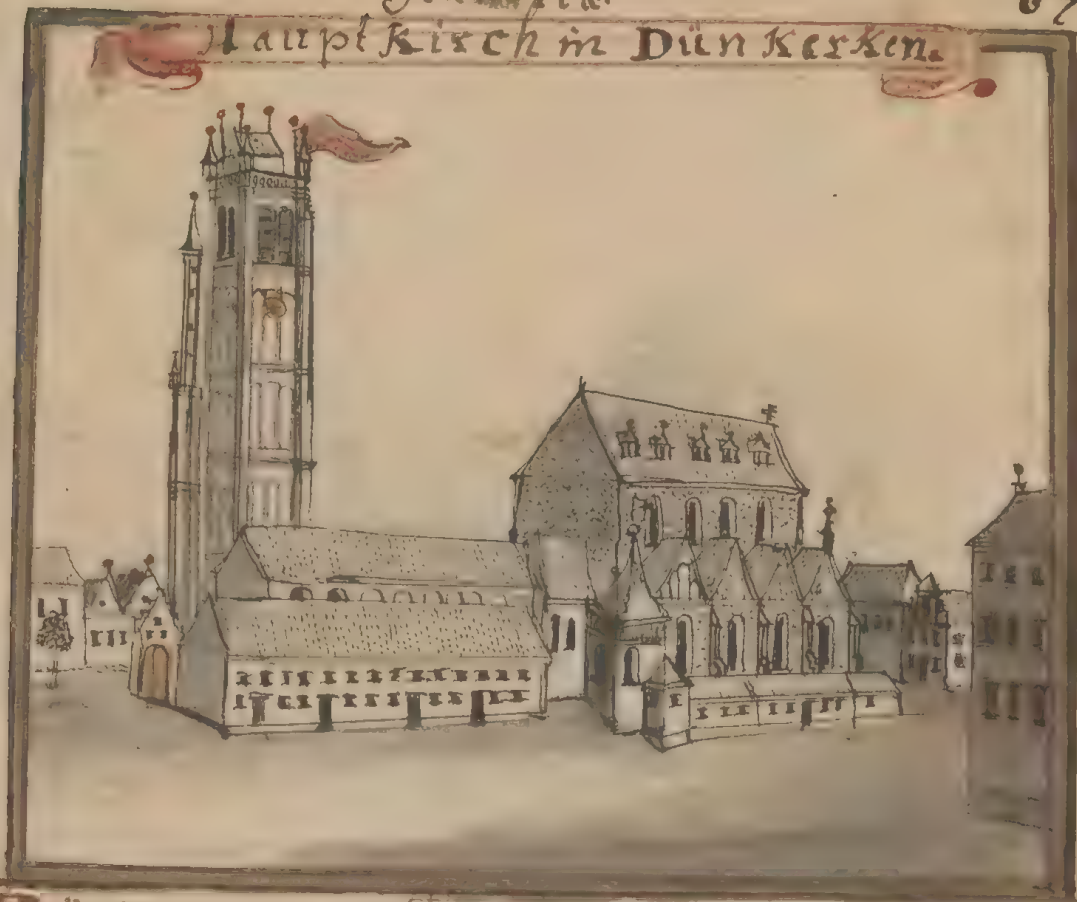 Haupt Kirch in Dün Kerken.